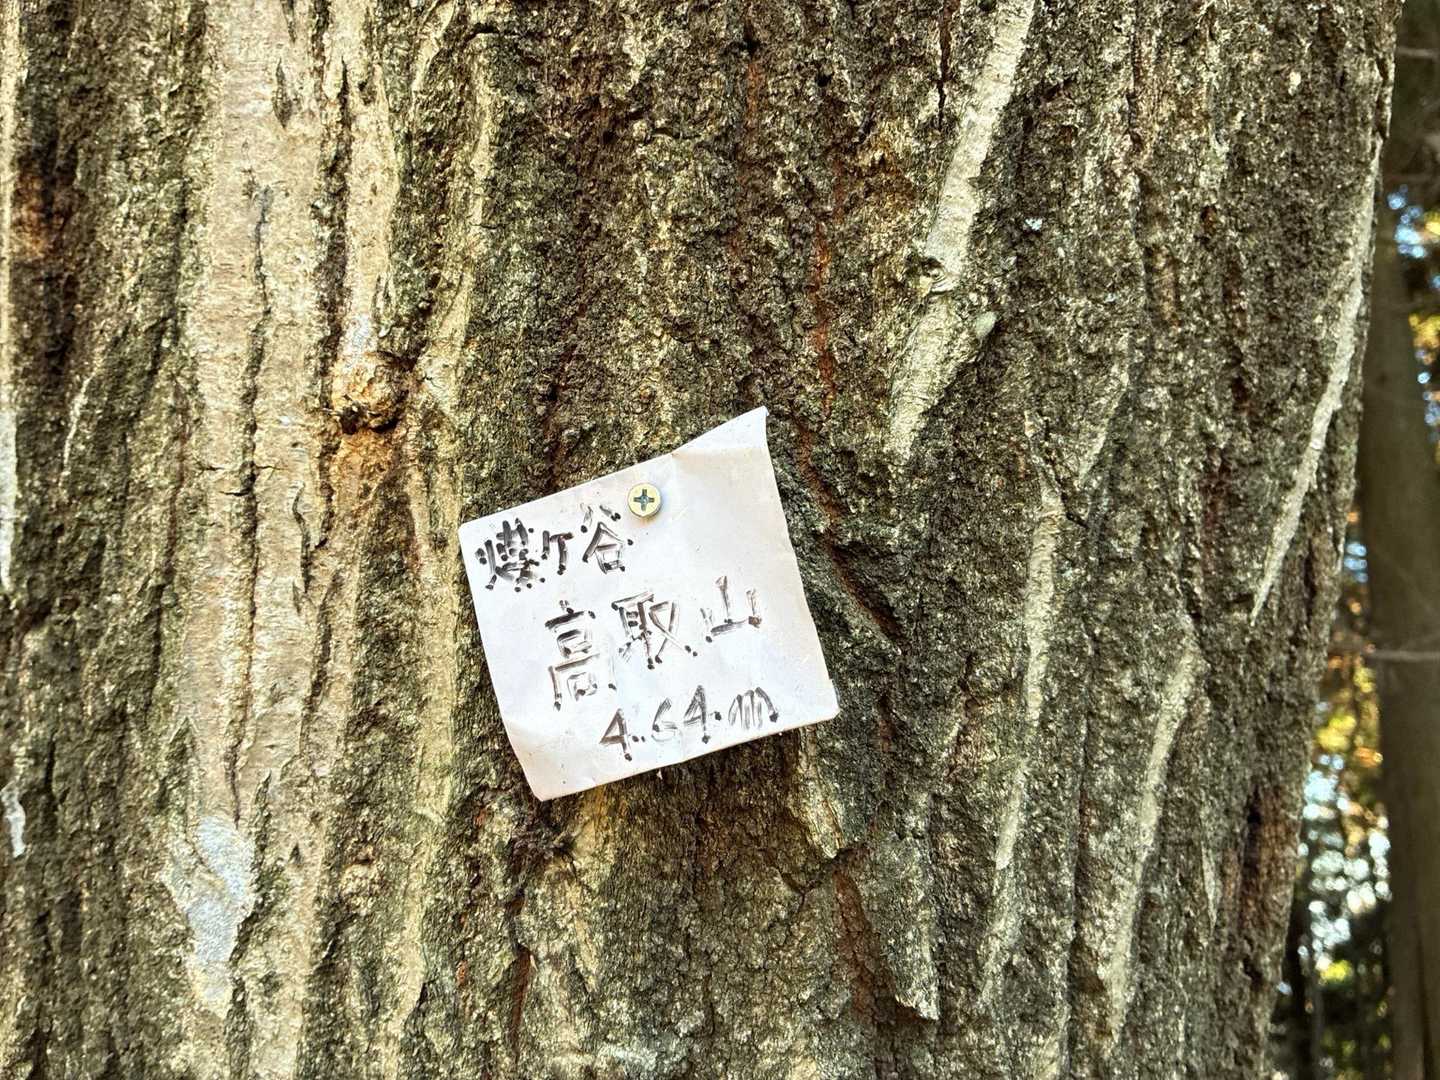 燧ケ谷
高取山
4.64.m